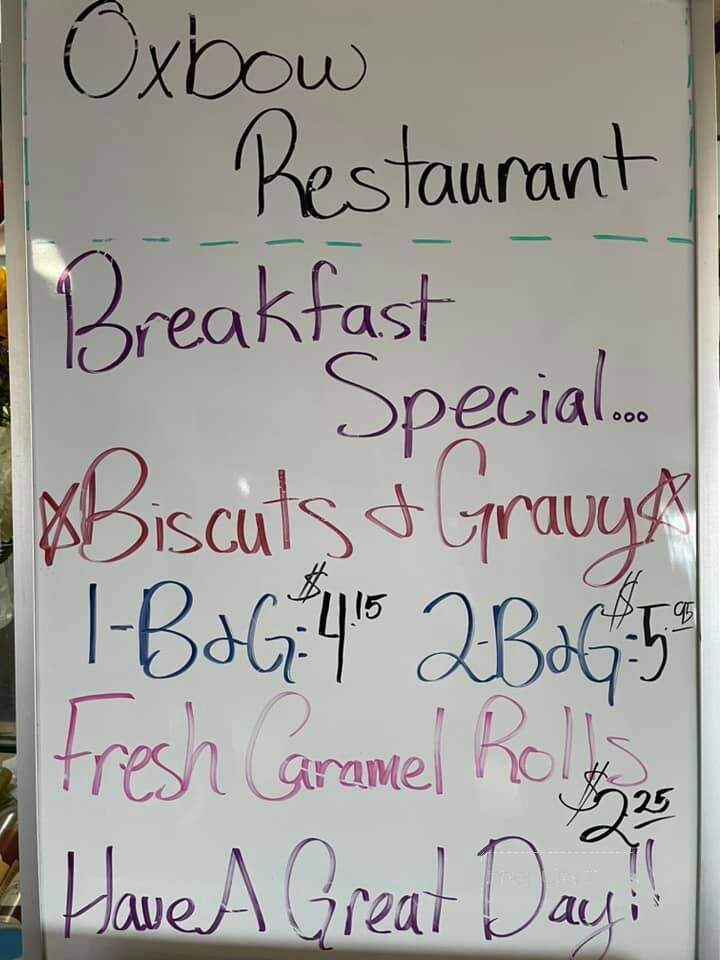 Oxbow
Restaurant
Breakfast
Special...
☆Biscuts & Gravy☆
1-B&G: $4.15 2-B&G: $5.95
Fresh Caramel Rolls
$2.25
Have A Great Day!!